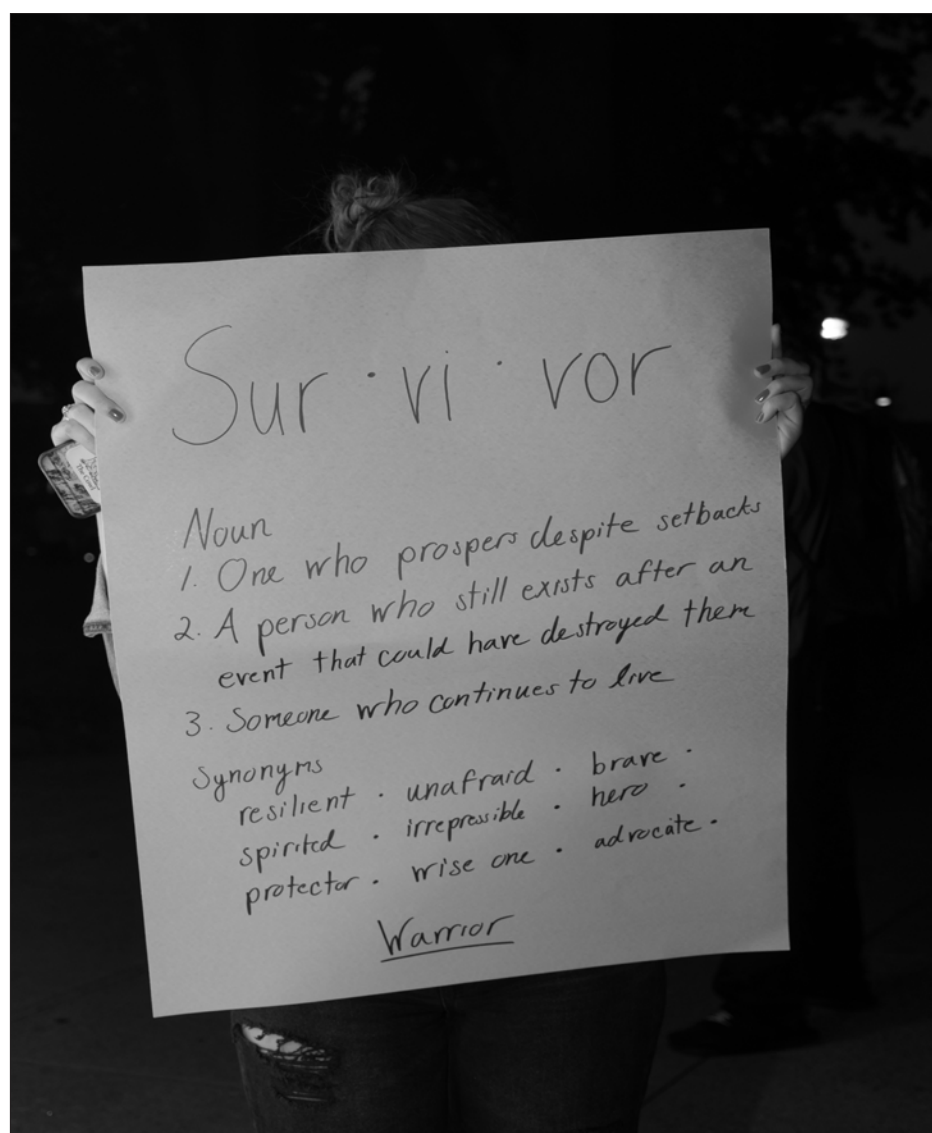 Sur · vi · vor
Noun
1. One who prospers despite setbacks
2. A person who still exists after an
event that could have destroyed them
3. Someone who continues to live
Synonyms
resilient · unafraid · brave ·
spirited · irrepressible · hero ·
protector · wise one · advocate ·
Warrior